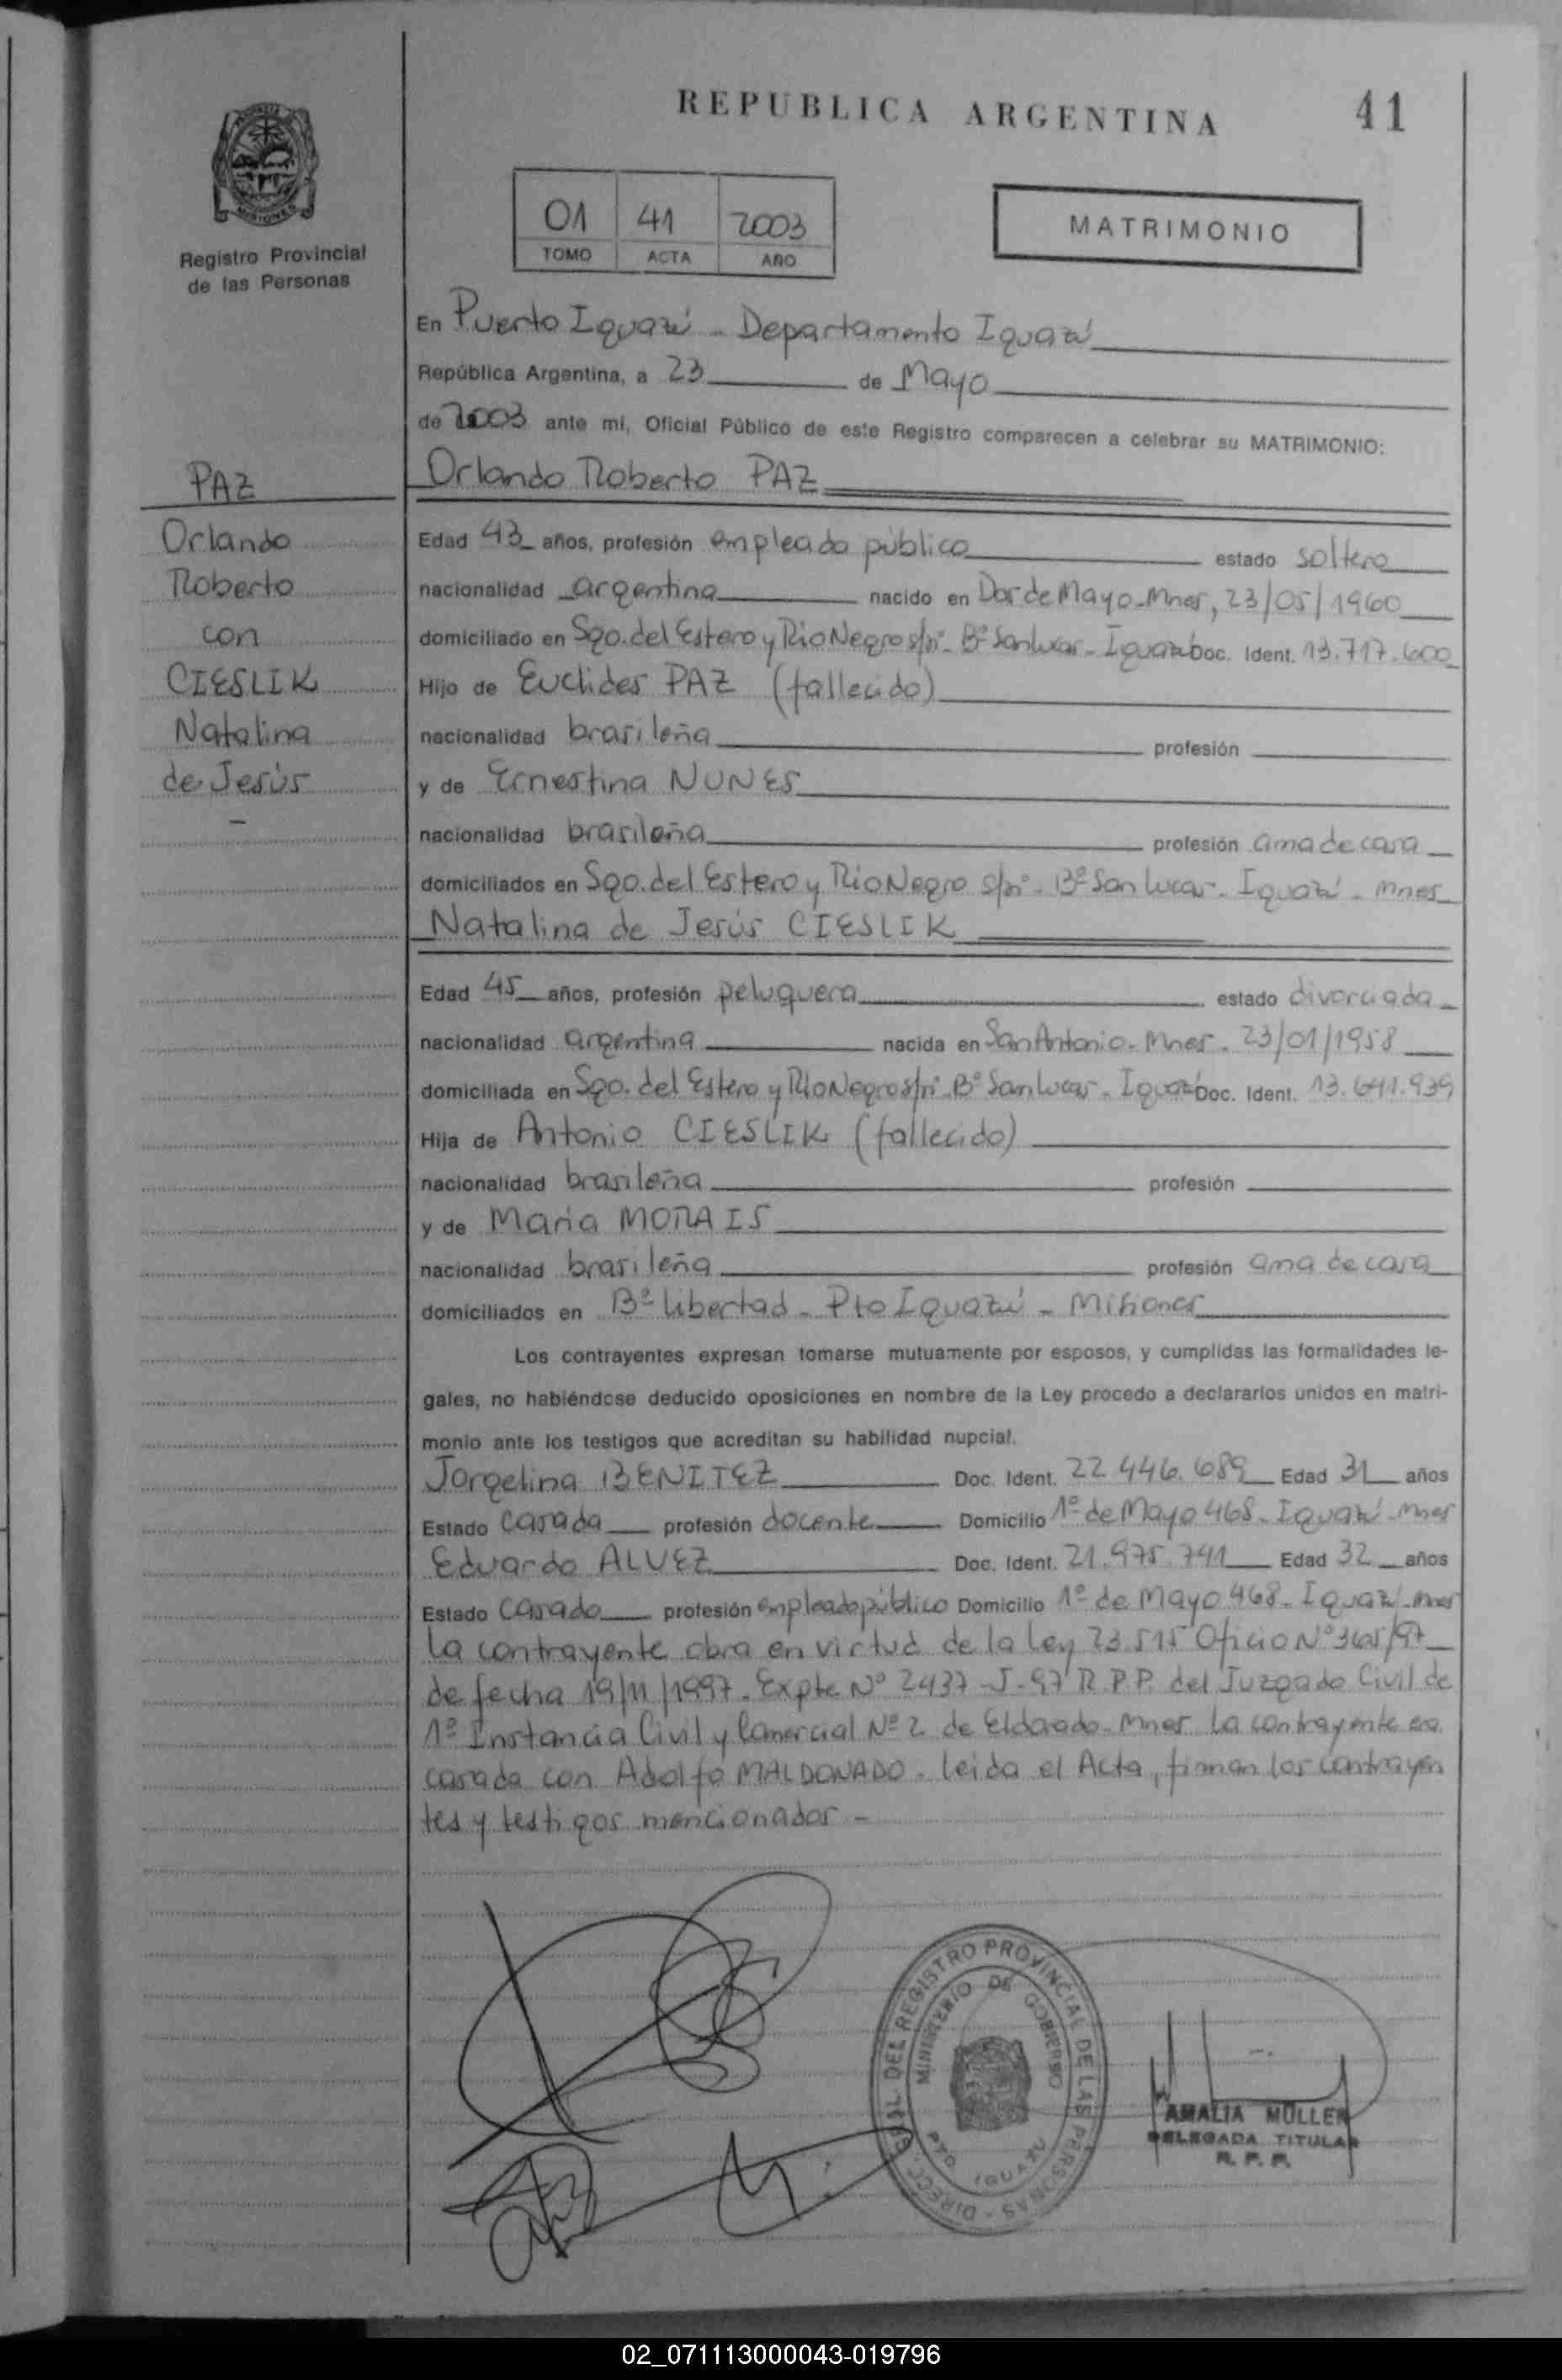 REPUBLICA ARGENTINA
41
MISIONES
Registro Provincial
de las Personas
01 41 2003
TOMO ACTA AÑO
MATRIMONIO
En Puerto Iguazú - Departamento Iguazú
República Argentina, a 23 de Mayo
de 2003 ante mi, Oficial Público de este Registro comparecen a celebrar su MATRIMONIO:
PAZ
Orlando
Roberto
con
CIESLIK
Natalina
de Jesús
-
Orlando Roberto PAZ
Edad 43 años, profesión empleado público estado soltero
nacionalidad argentina nacido en Dos de Mayo-Mnes, 23/05/1960
domiciliado en Sgo. del Estero y Rio Negro s/nº- Bº San Lucas - Iguazú Doc. Ident. 13.717.600
Hijo de Euclides PAZ (fallecido)
nacionalidad brasileña profesión
y de Ernestina NUNES
nacionalidad brasileña profesión ama de casa
domiciliados en Sgo. del Estero y Rio Negro s/nº - Bº San Lucas - Iguazú - Mnes
Natalina de Jesús CIESLIK
Edad 45 años, profesión peluquera estado divorciada
nacionalidad argentina nacida en San Antonio - Mnes - 23/01/1958
domiciliada en Sgo. del Estero y Rio Negro s/nº - Bº San Lucas - Iguazú Doc. Ident. 13.641.939
Hija de Antonio CIESLIK (fallecido)
nacionalidad brasileña profesión
y de Maria MORAIS
nacionalidad brasileña profesión ama de casa
domiciliados en Bº Libertad - Pto Iguazú - Misiones
Los contrayentes expresan tomarse mutuamente por esposos, y cumplidas las formalidades le-
gales, no habiéndose deducido oposiciones en nombre de la Ley procedo a declararlos unidos en matri-
monio ante los testigos que acreditan su habilidad nupcial.
Jorgelina BENITEZ Doc. Ident. 22.446.689 Edad 31 años
Estado casada profesión docente Domicilio 1º de Mayo 468 - Iguazú - Mnes
Eduardo ALVEZ Doc. Ident. 21.975.741 Edad 32 años
Estado casado profesión empleado público Domicilio 1º de Mayo 468 - Iguazú - Mnes
La contrayente obra en virtud de la Ley 23.515 Oficio Nº 365/97
de fecha 19/11/1997. Expte Nº 2437-J-97 R.P.P. del Juzgado Civil de
1º Instancia Civil y Comercial Nº 2 de Eldorado-Mnes. La contrayente era
casada con Adolfo MALDONADO. Leida el Acta, firman los contrayen
tes y testigos mencionados -
DIRECC. GRAL. DEL REGISTRO PROVINCIAL DE LAS PERSONAS
MINISTERIO DE GOBIERNO
PTO. IGUAZU
AMALIA MÜLLER
DELEGADA TITULAR
R. P. P.
02_071113000043-019796